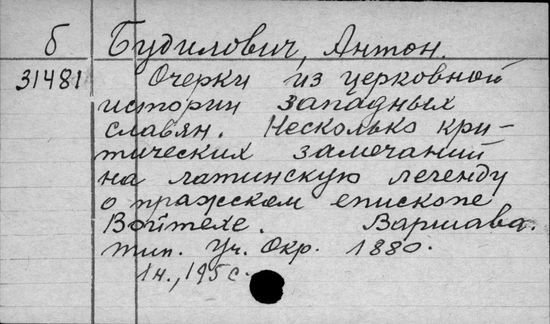 б Будилович, Антон.
31481 Очерки из церковной
истории западных
славян. Несколько кри-
тических замечаний
на латинскую легенду
о пражском епископе
Войтехе. Варшава.
тип. Уч. Окр. 1880.
1н., 195 с.